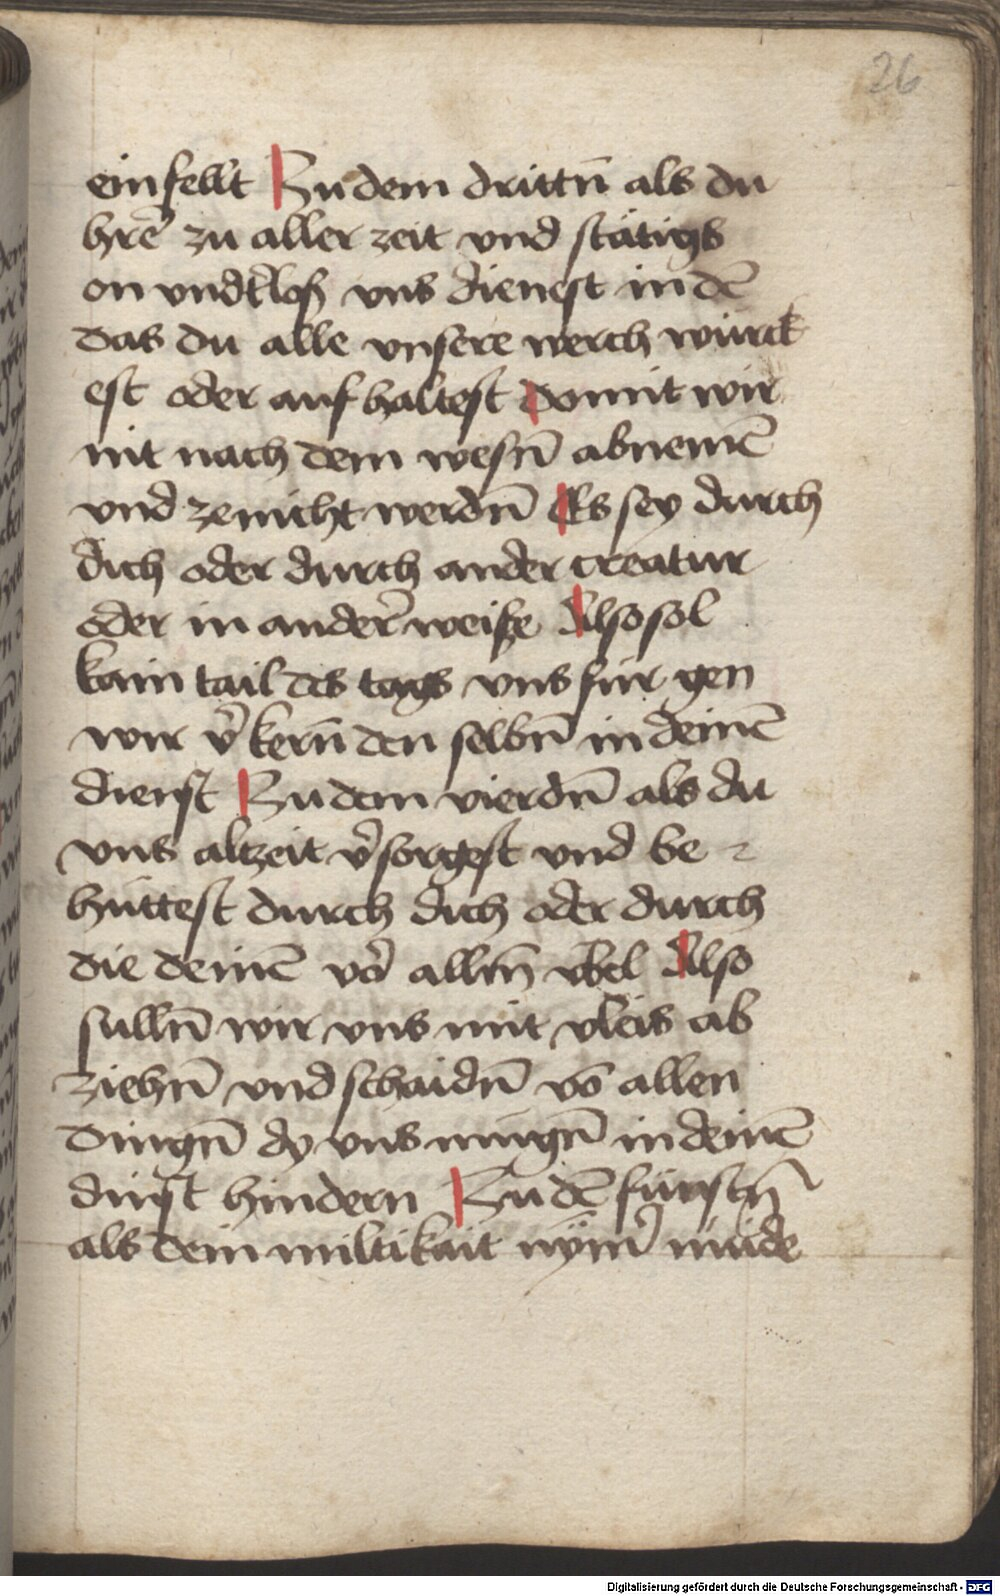 26
einfellt Zu dem drittn̄ als du
hrē zu aller zeit vnd stätigs
on vndt̄loß vns dienest in dē
das du alle vnsere werch würck
est oder aufhaltest Domit wir
nit nach dem wesn̄ abnemē
vnd ze nicht werdn̄ Es sey durch
dich oder durch ander creatur
oder in anderᷣ weiße Also sol
kain tail des tags vns für gen
wir v̄kern̄ den selbn̄ in deinē
dienst Zu dem vierdn̄ als du
vns altzeit v̄sorgest vnd be
hüttest durch dich oder durch
die deinē vō allm̄ vbel Also
sulln̄ wir vns mit vleis ab
ziehn̄ vnd schaidn̄ vō allen
dingn̄ dy vns mügn̄ in deinē
dinst hindern Zu dē fünftn̄
als dein miltikait nÿmᷣ müde
Digitalisierung gefördert durch die Deutsche Forschungsgemeinschaft - DFG